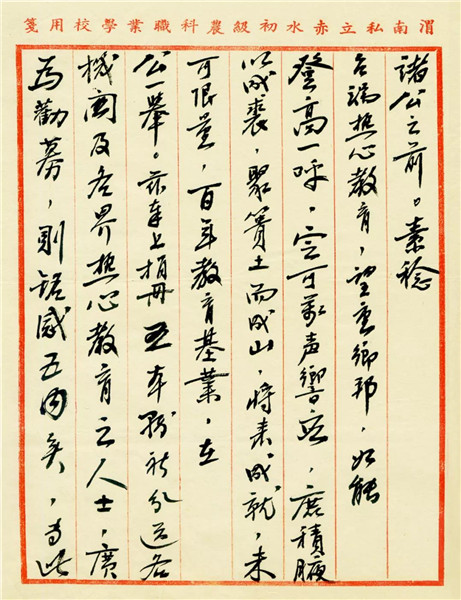 渭南私立赤水初級農科職業學校用箋
諸公之前。素稔
台端热心教育，望重鄉邦，如能
登高一呼，定可萬声響应，庶積腋
以成裘，聚簣土而成山，將来成就，未
可限量，百年教育基業，在
公一舉。茲奉上捐冊五本祈分送各
機関及各界热心教育之人士，廣
為勸募，則銘感五内矣，专此